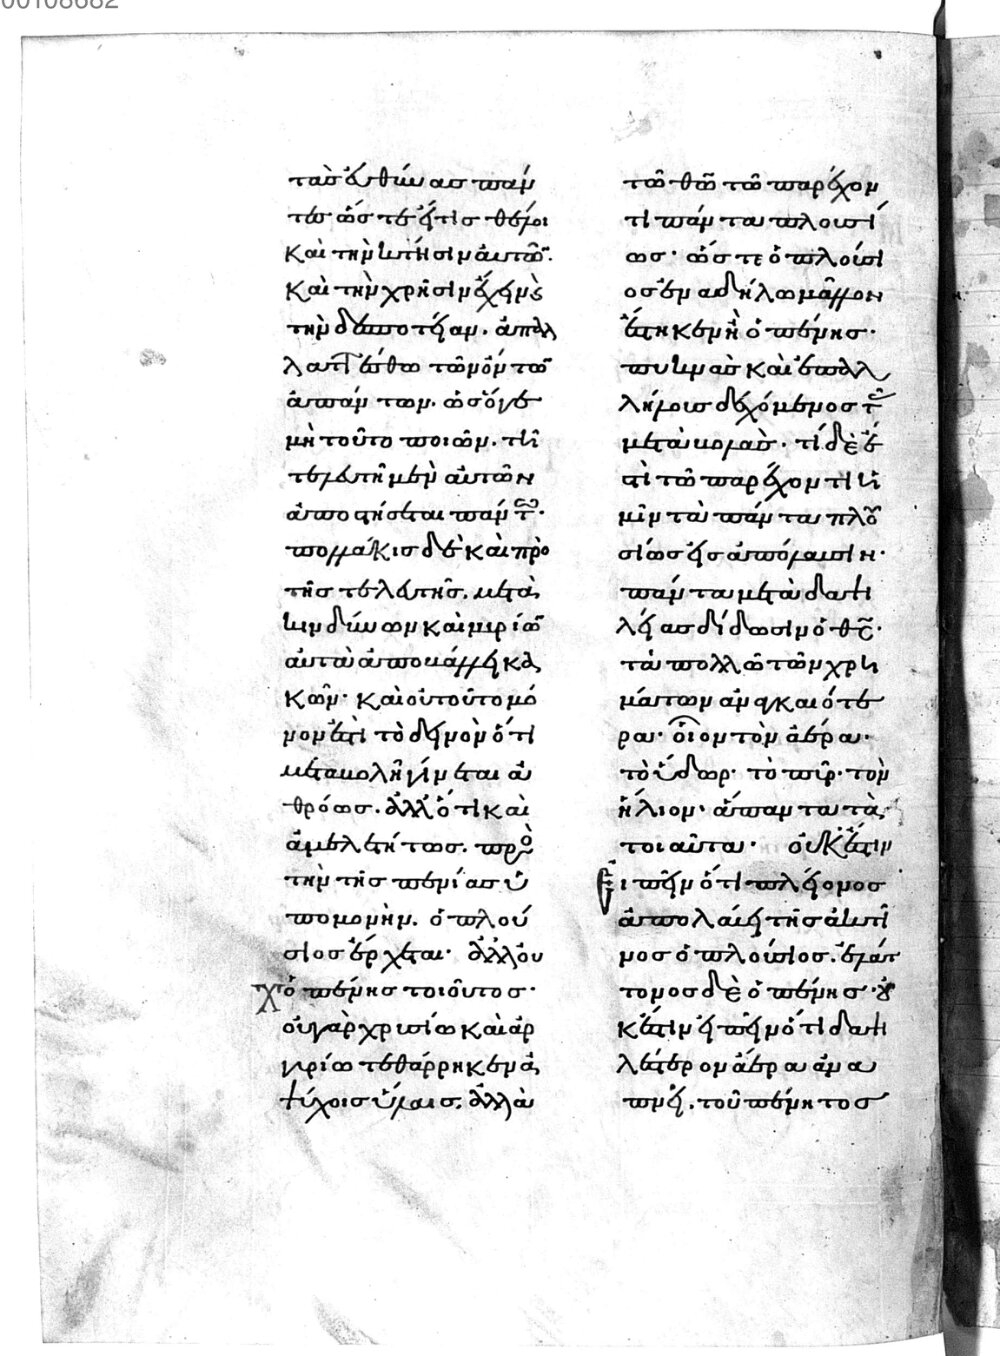 00108682
τασ ἐσθίων ασ παν
τεσ ὥστε ἥτισ θέλοι
καὶ τὴν κτῆσιν αὐτῶν.
καὶ τὴν χρῆσιν ἔχειν κ
τὴν δεσποτείαν. ἀπαλ
λαττέσθω τῶν ὄντων
ἁπάντων. ὡσ ὅγε
μὴ τοῦτο ποιῶν. τῆι
τελευτῆ μὲν αὐτῶν
ἀποστήσεται πάντων.
πολλάκισ δὲ καὶ πρὸ
τῆσ τελευτῆσ. μετὰ
κινδύνων καὶ μυρίων
αὐτὰ ἀποβάλλει κα
κῶν. καὶ οὐ τοῦτο μό
νον ἐστὶ τὸ δεινὸν ὅτι
μεταβολὴ γίνεται ἀ
θρόωσ. ἀλλ' ὅτι καὶ
ἀμελετήτωσ. πρὸσ
τὴν τῆσ πενίασ ὑ
πομονὴν. ὁ πλού
σιοσ ἔρχεται. ἀλλ' οὐ
χ ὁ πένησ τοιοῦτοσ.
οὐ γὰρ χρυσίω καὶ ἀρ
γυρίω τεθάρρηκεν ἀ
ψύχοισ ὕλαισ. ἀλλὰ
τῶ θῶ τῶ παρέχον
τι πάντα πλουσί
ωσ. ὥστε ὁ πλούσι
οσ ἐν ἀδήλω μᾶλλον
ἕστηκεν ἢ ὁ πένησ.
πυκνὰσ καὶ ἐπαλ
λήλουσ δεχόμενοσ τὰσ
μεταβολὰσ. τί δὲ ἐ
στὶ τῶ παρέχοντι ἡ
μῖν τὰ πάντα πλου
σίωσ εἰσ ἀπόλαυσιν.
πάντα μετὰ δαψι
λείασ δίδωσιν ὁ θσ.
τὰ πολλῶ τῶν χρη
μάτων ἀναγκαιότε
ρα. οἷον τὸν ἀέρα.
τὸ ὕδωρ. τὸ πῦρ. τὸν
ἥλιον. ἅπαντα τὰ
τοιαῦτα. οὐκ ἔστιν
εἰπεῖν ὅτι πλείονοσ
ἀπολαύει τῆσ ἀκτῖ
νοσ ὁ πλούσιοσ. ἐλάτ
τονοσ δὲ ὁ πένησ. οὐ
κ ἔστιν εἰπεῖν ὅτι δαψι
λέστερον ἀέρα ἀνα
πνεῖ. τοῦ πένητοσ